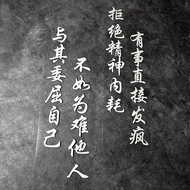 有事直接发疯
拒绝精神内耗
不如为难他人
与其委屈自己